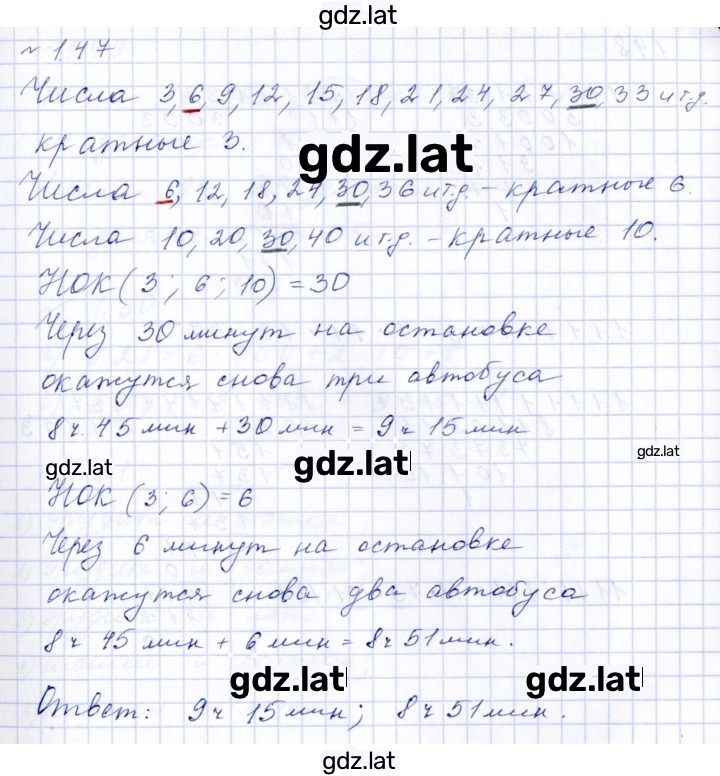 gdz.lat
№ 1.47
Числа 3, 6, 9, 12, 15, 18, 21, 24, 27, 30, 33 и т.д.
кратные 3.
gdz.lat
Числа 6, 12, 18, 24, 30, 36 и т.д. - кратные 6.
Числа 10, 20, 30, 40 и т.д. - кратные 10.
НОК (3; 6; 10) = 30
Через 30 минут на остановке
окажутся снова три автобуса
8 ч. 45 мин + 30 мин = 9 ч 15 мин
gdz.lat gdz.lat gdz.lat
НОК (3; 6) = 6
Через 6 минут на остановке
окажутся снова два автобуса
8 ч 45 мин + 6 мин = 8 ч 51 мин.
gdz.lat gdz.lat
Ответ: 9 ч 15 мин; 8 ч 51 мин.
gdz.lat